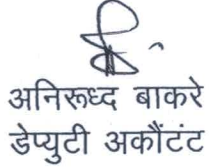 अनिरूध्द बाकरे
डेप्युटी अकौंटंट